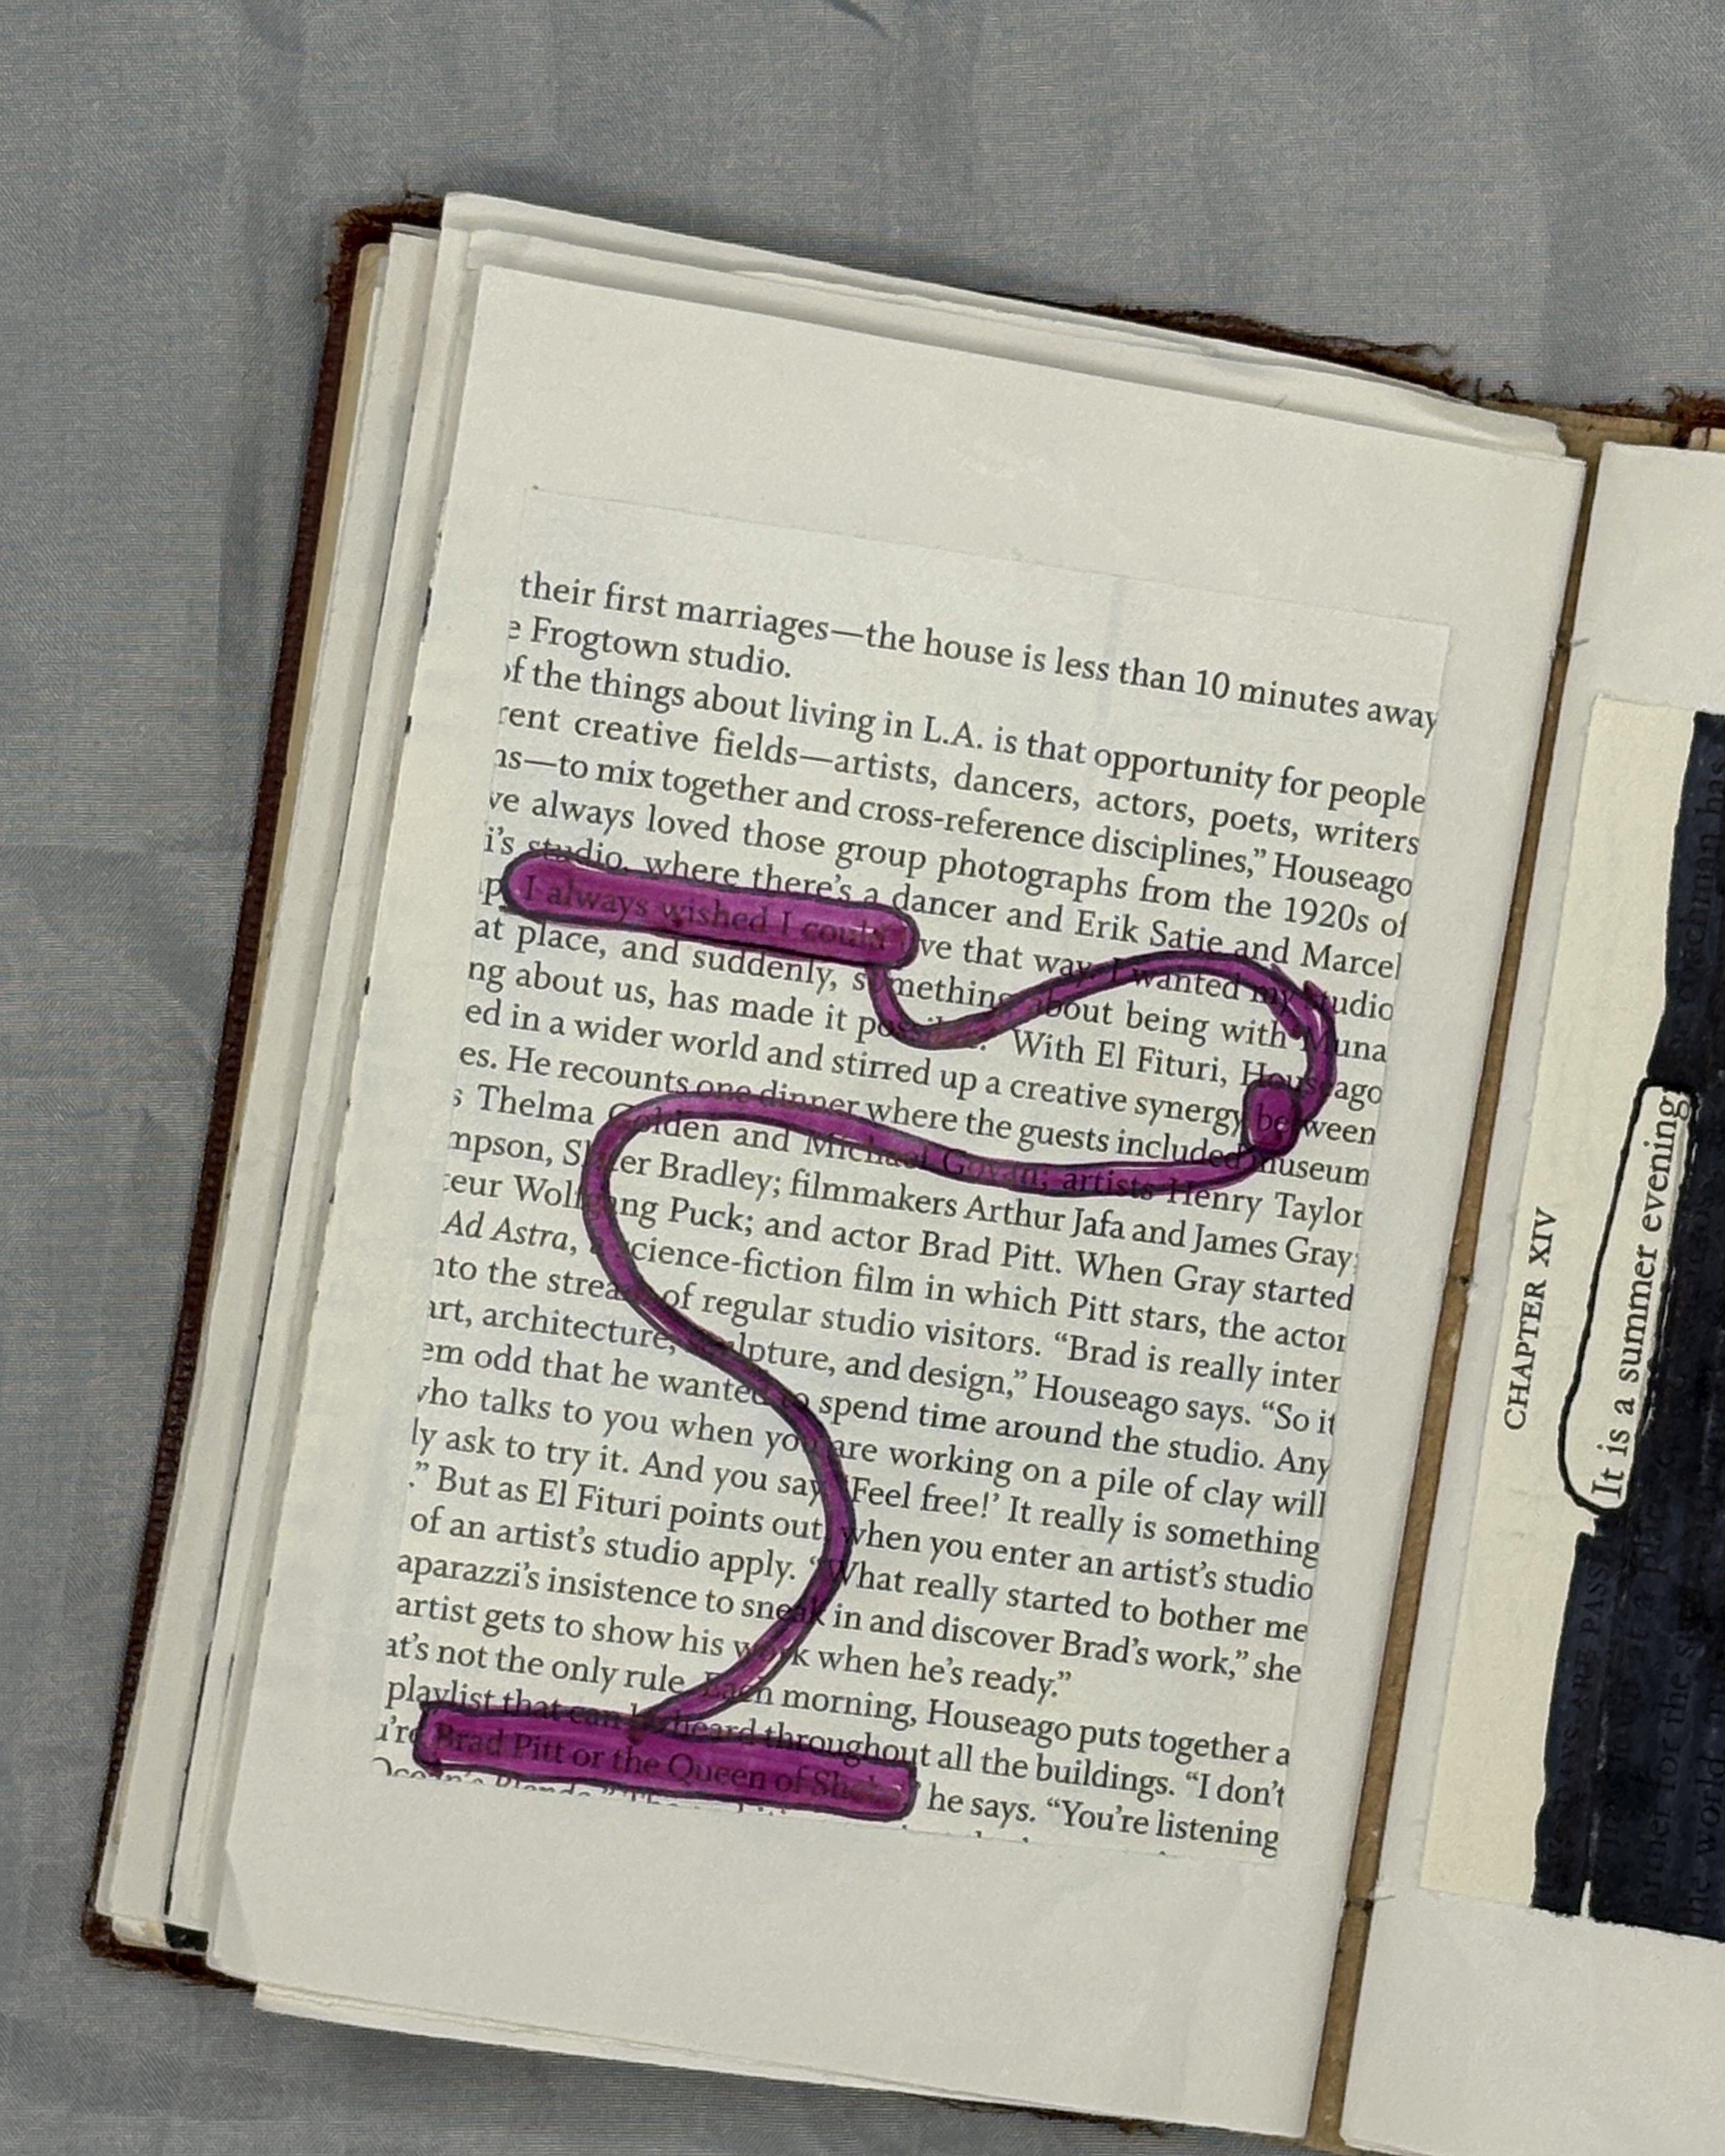 their first marriages—the house is less than 10 minutes away
e Frogtown studio.
of the things about living in L.A. is that opportunity for people
rent creative fields—artists, dancers, actors, poets, writers
ns—to mix together and cross-reference disciplines,” Houseago
ve always loved those group photographs from the 1920s of
i’s studio, where there’s a dancer and Erik Satie and Marcel
p I always wished I could ve that way. I wanted my studio
at place, and suddenly, something about being with Muna
ng about us, has made it possible.” With El Fituri, Houseago
ed in a wider world and stirred up a creative synergy between
es. He recounts one dinner where the guests included museum
s Thelma Golden and Michael Govan; artists Henry Taylor
mpson, Slater Bradley; filmmakers Arthur Jafa and James Gray;
teur Wolfgang Puck; and actor Brad Pitt. When Gray started
Ad Astra, a science-fiction film in which Pitt stars, the actor
nto the stream of regular studio visitors. “Brad is really inter
art, architecture, sculpture, and design,” Houseago says. “So it
em odd that he wanted to spend time around the studio. Any
who talks to you when you are working on a pile of clay will
ly ask to try it. And you say, ‘Feel free!’ It really is something
.” But as El Fituri points out, when you enter an artist’s studio
of an artist’s studio apply. “What really started to bother me
aparazzi’s insistence to sneak in and discover Brad’s work,” she
artist gets to show his work when he’s ready.”
at’s not the only rule. Each morning, Houseago puts together a
playlist that can be heard throughout all the buildings. “I don’t
u’re Brad Pitt or the Queen of Sheba,” he says. “You’re listening
CHAPTER XIV
It is a summer evening;